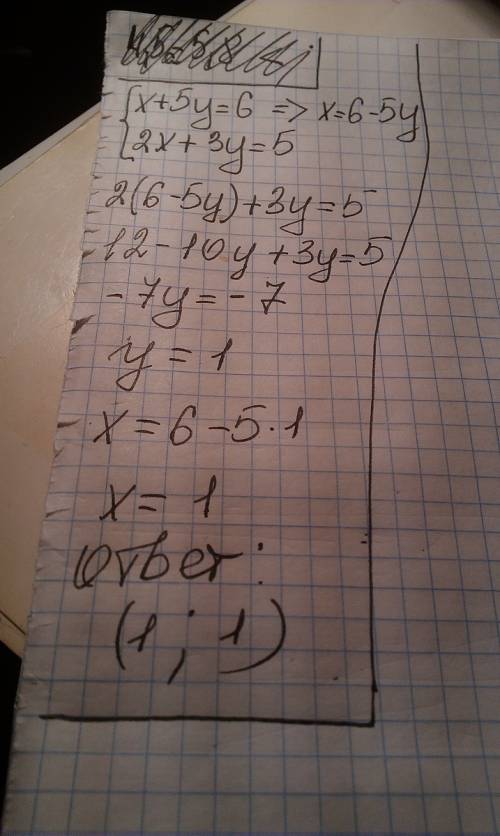 x+5y=6 => x=6-5y
2x+3y=5
2(6-5y)+3y=5
12-10y+3y=5
-7y=-7
y=1
x=6-5·1
x=1
Ответ:
(1;1)